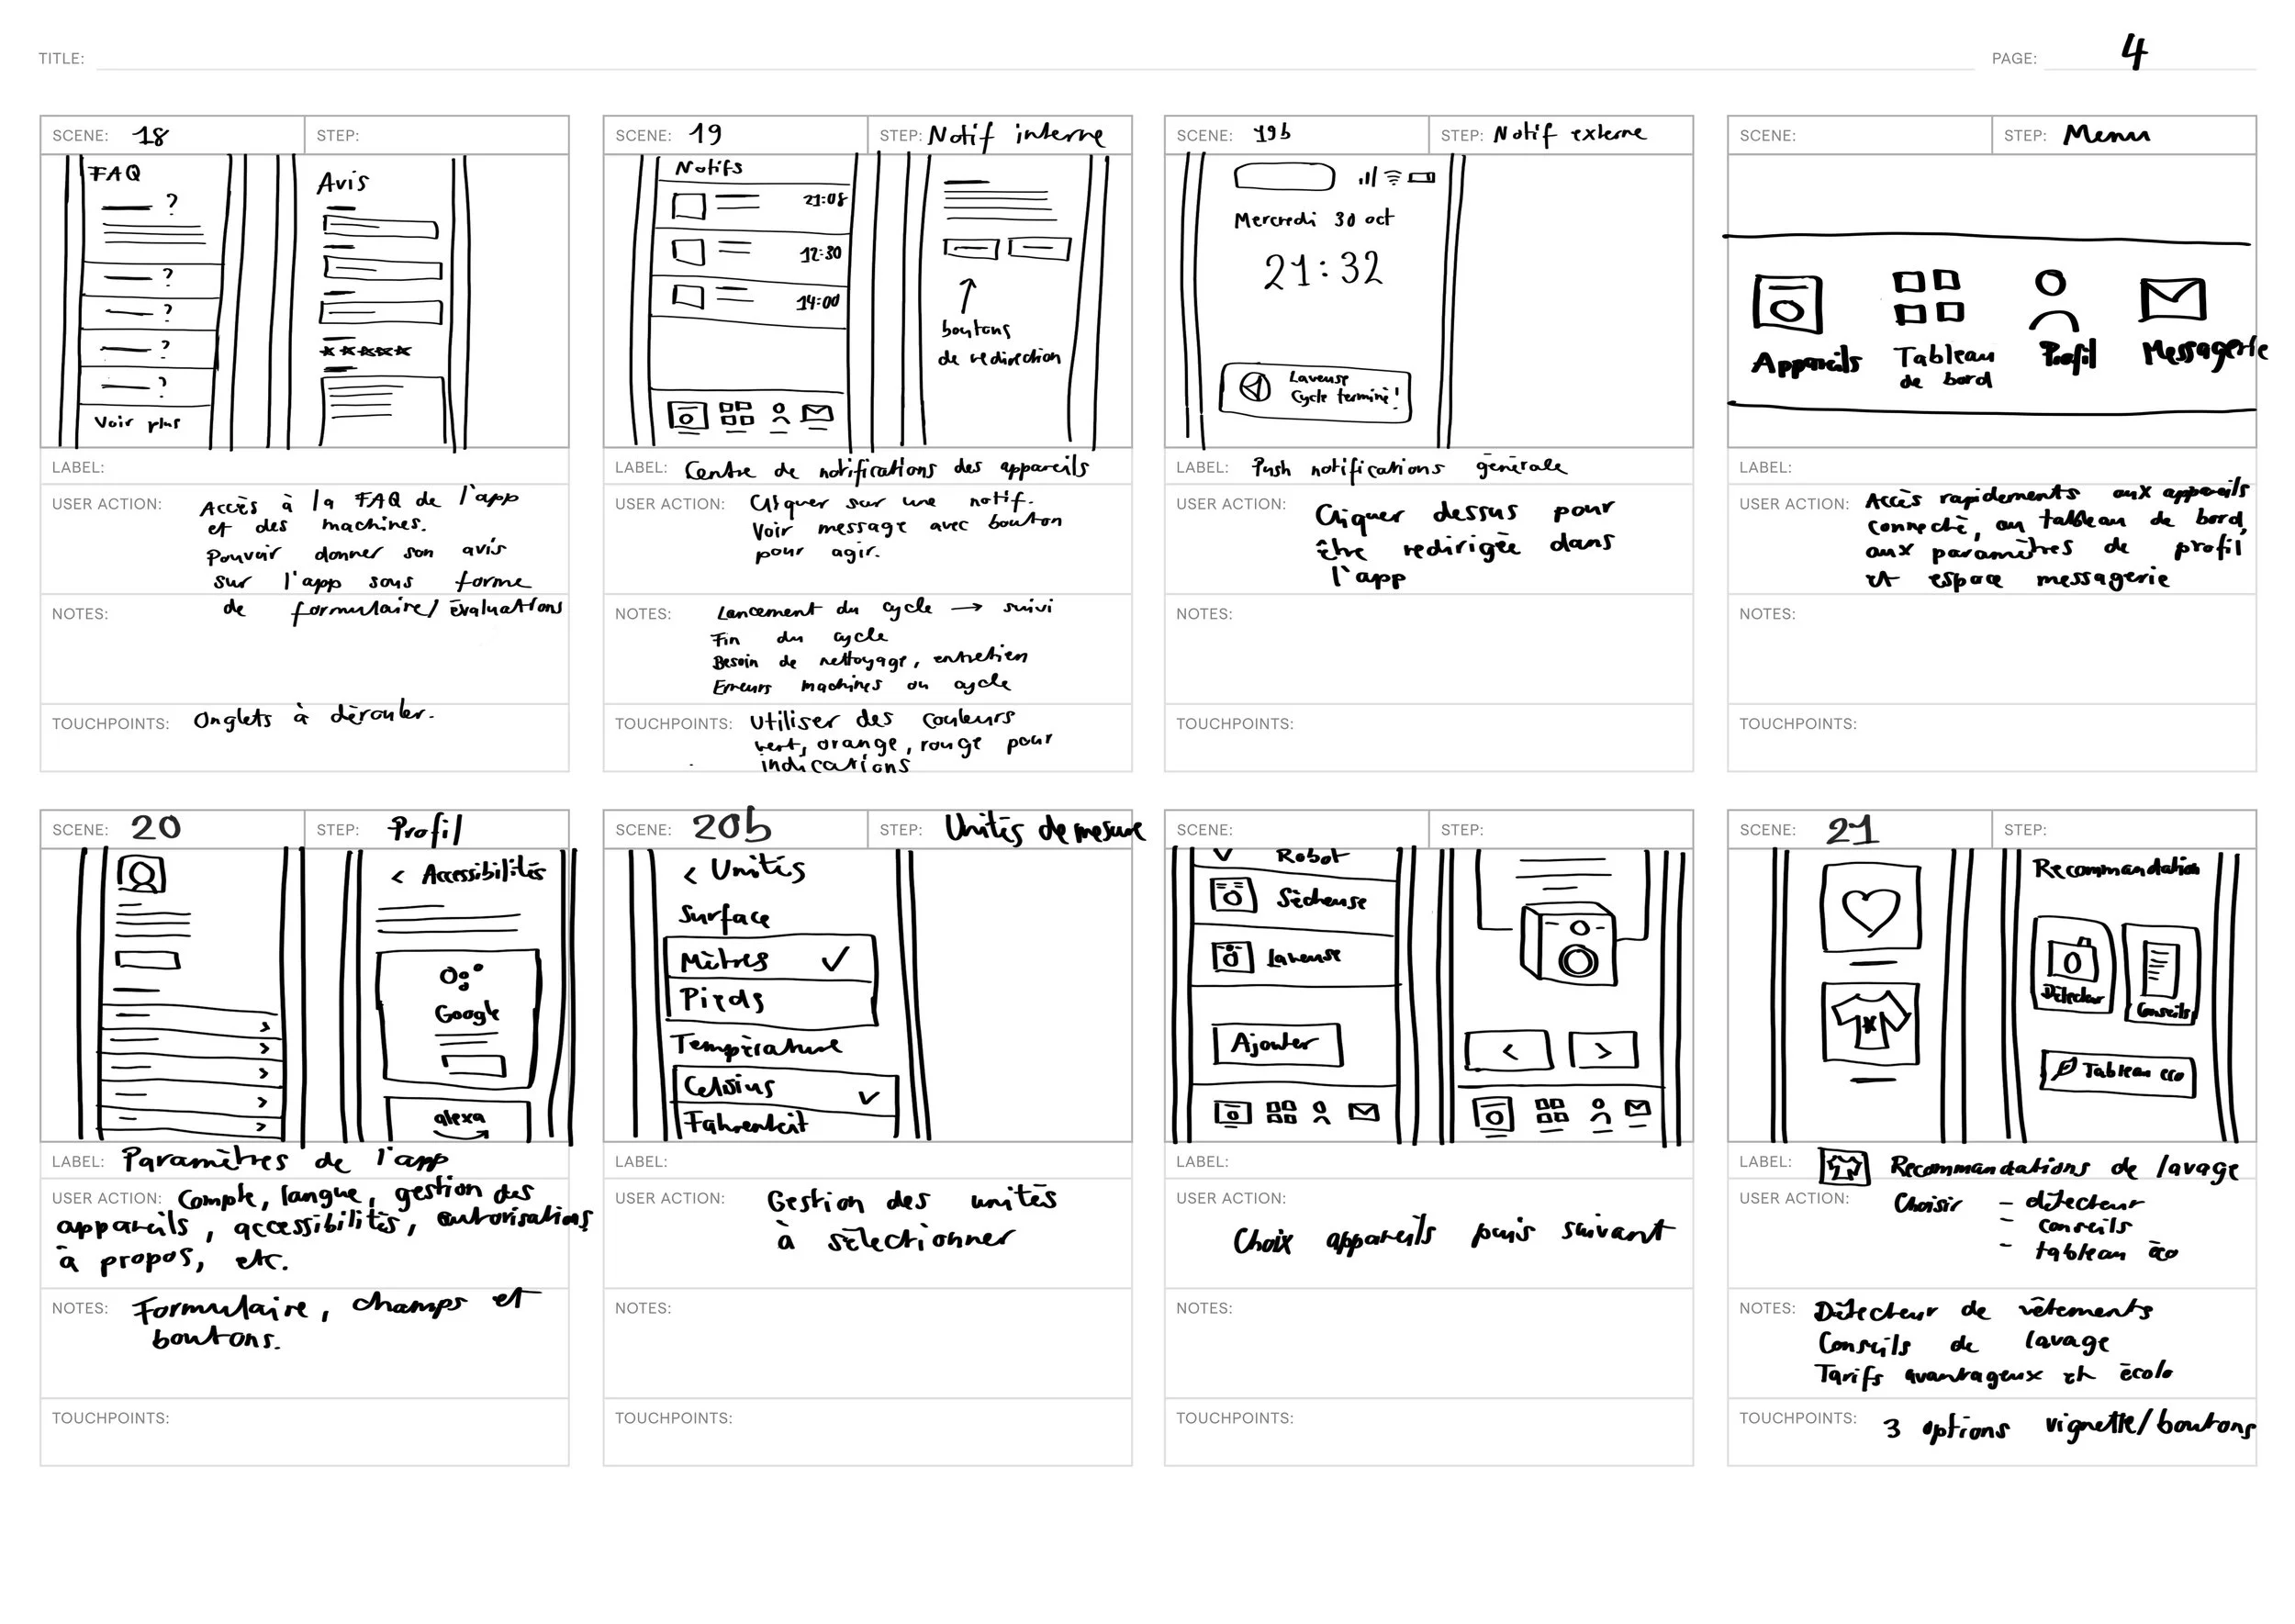 TITLE:
PAGE: 4
SCENE: 18
STEP:
FAQ
?
?
?
?
?
Voir plus
Avis
LABEL:
USER ACTION: Accès à la FAQ de l'app
et des machines.
Pouvoir donner son avis
sur l'app sous forme
de formulaire/évaluations
NOTES:
TOUCHPOINTS: Onglets à dérouler.
SCENE: 19
STEP: Notif interne
Notifs
21:08
12:30
14:00
boutons
de redirection
LABEL: Centre de notifications des appareils
USER ACTION: Cliquer sur une notif.
Voir message avec bouton
pour agir.
NOTES: Lancement du cycle → suivi
Fin du cycle
Besoin de nettoyage, entretien
Erreurs machines ou cycle
TOUCHPOINTS: Utiliser des couleurs
vert, orange, rouge pour
indications
SCENE: 19b
STEP: Notif externe
Mercredi 30 oct
21:32
Laveuse
Cycle terminé!
LABEL: Push notifications générale
USER ACTION: Cliquer dessus pour
être redirigée dans
l'app
NOTES:
TOUCHPOINTS:
SCENE:
STEP: Menu
Appareils
Tableau
de bord
Profil
Messagerie
LABEL:
USER ACTION: Accès rapidements aux appareils
connecté, au tableau de bord,
aux paramètres de profil
et espace messagerie
NOTES:
TOUCHPOINTS:
SCENE: 20
STEP: Profil
< Accessibilités
Google
alexa
LABEL: Paramètres de l'app
USER ACTION: Compte, langue, gestion des
appareils, accessibilités, autorisations,
à propos, etc.
NOTES: Formulaire, champs et
boutons.
TOUCHPOINTS:
SCENE: 20b
STEP: Unités de mesure
< Unités
Surface
Mètres ✓
Pieds
Température
Celsius ✓
Fahrenheit
LABEL:
USER ACTION: Gestion des unités
à sélectionner
NOTES:
TOUCHPOINTS:
SCENE:
STEP:
Robot
Sècheuse
Laveuse
Ajouter
<
>
LABEL:
USER ACTION:
Choix appareils puis suivant
NOTES:
TOUCHPOINTS:
SCENE: 21
STEP:
Recommandation
Détecteur
Conseils
Tableau éco
LABEL: Recommandations de lavage
USER ACTION: Choisir - détecteur
- conseils
- tableau éco
NOTES: Détecteur de vêtements
Conseils de lavage
Tarifs avantageux et écolo
TOUCHPOINTS: 3 options vignette/boutons